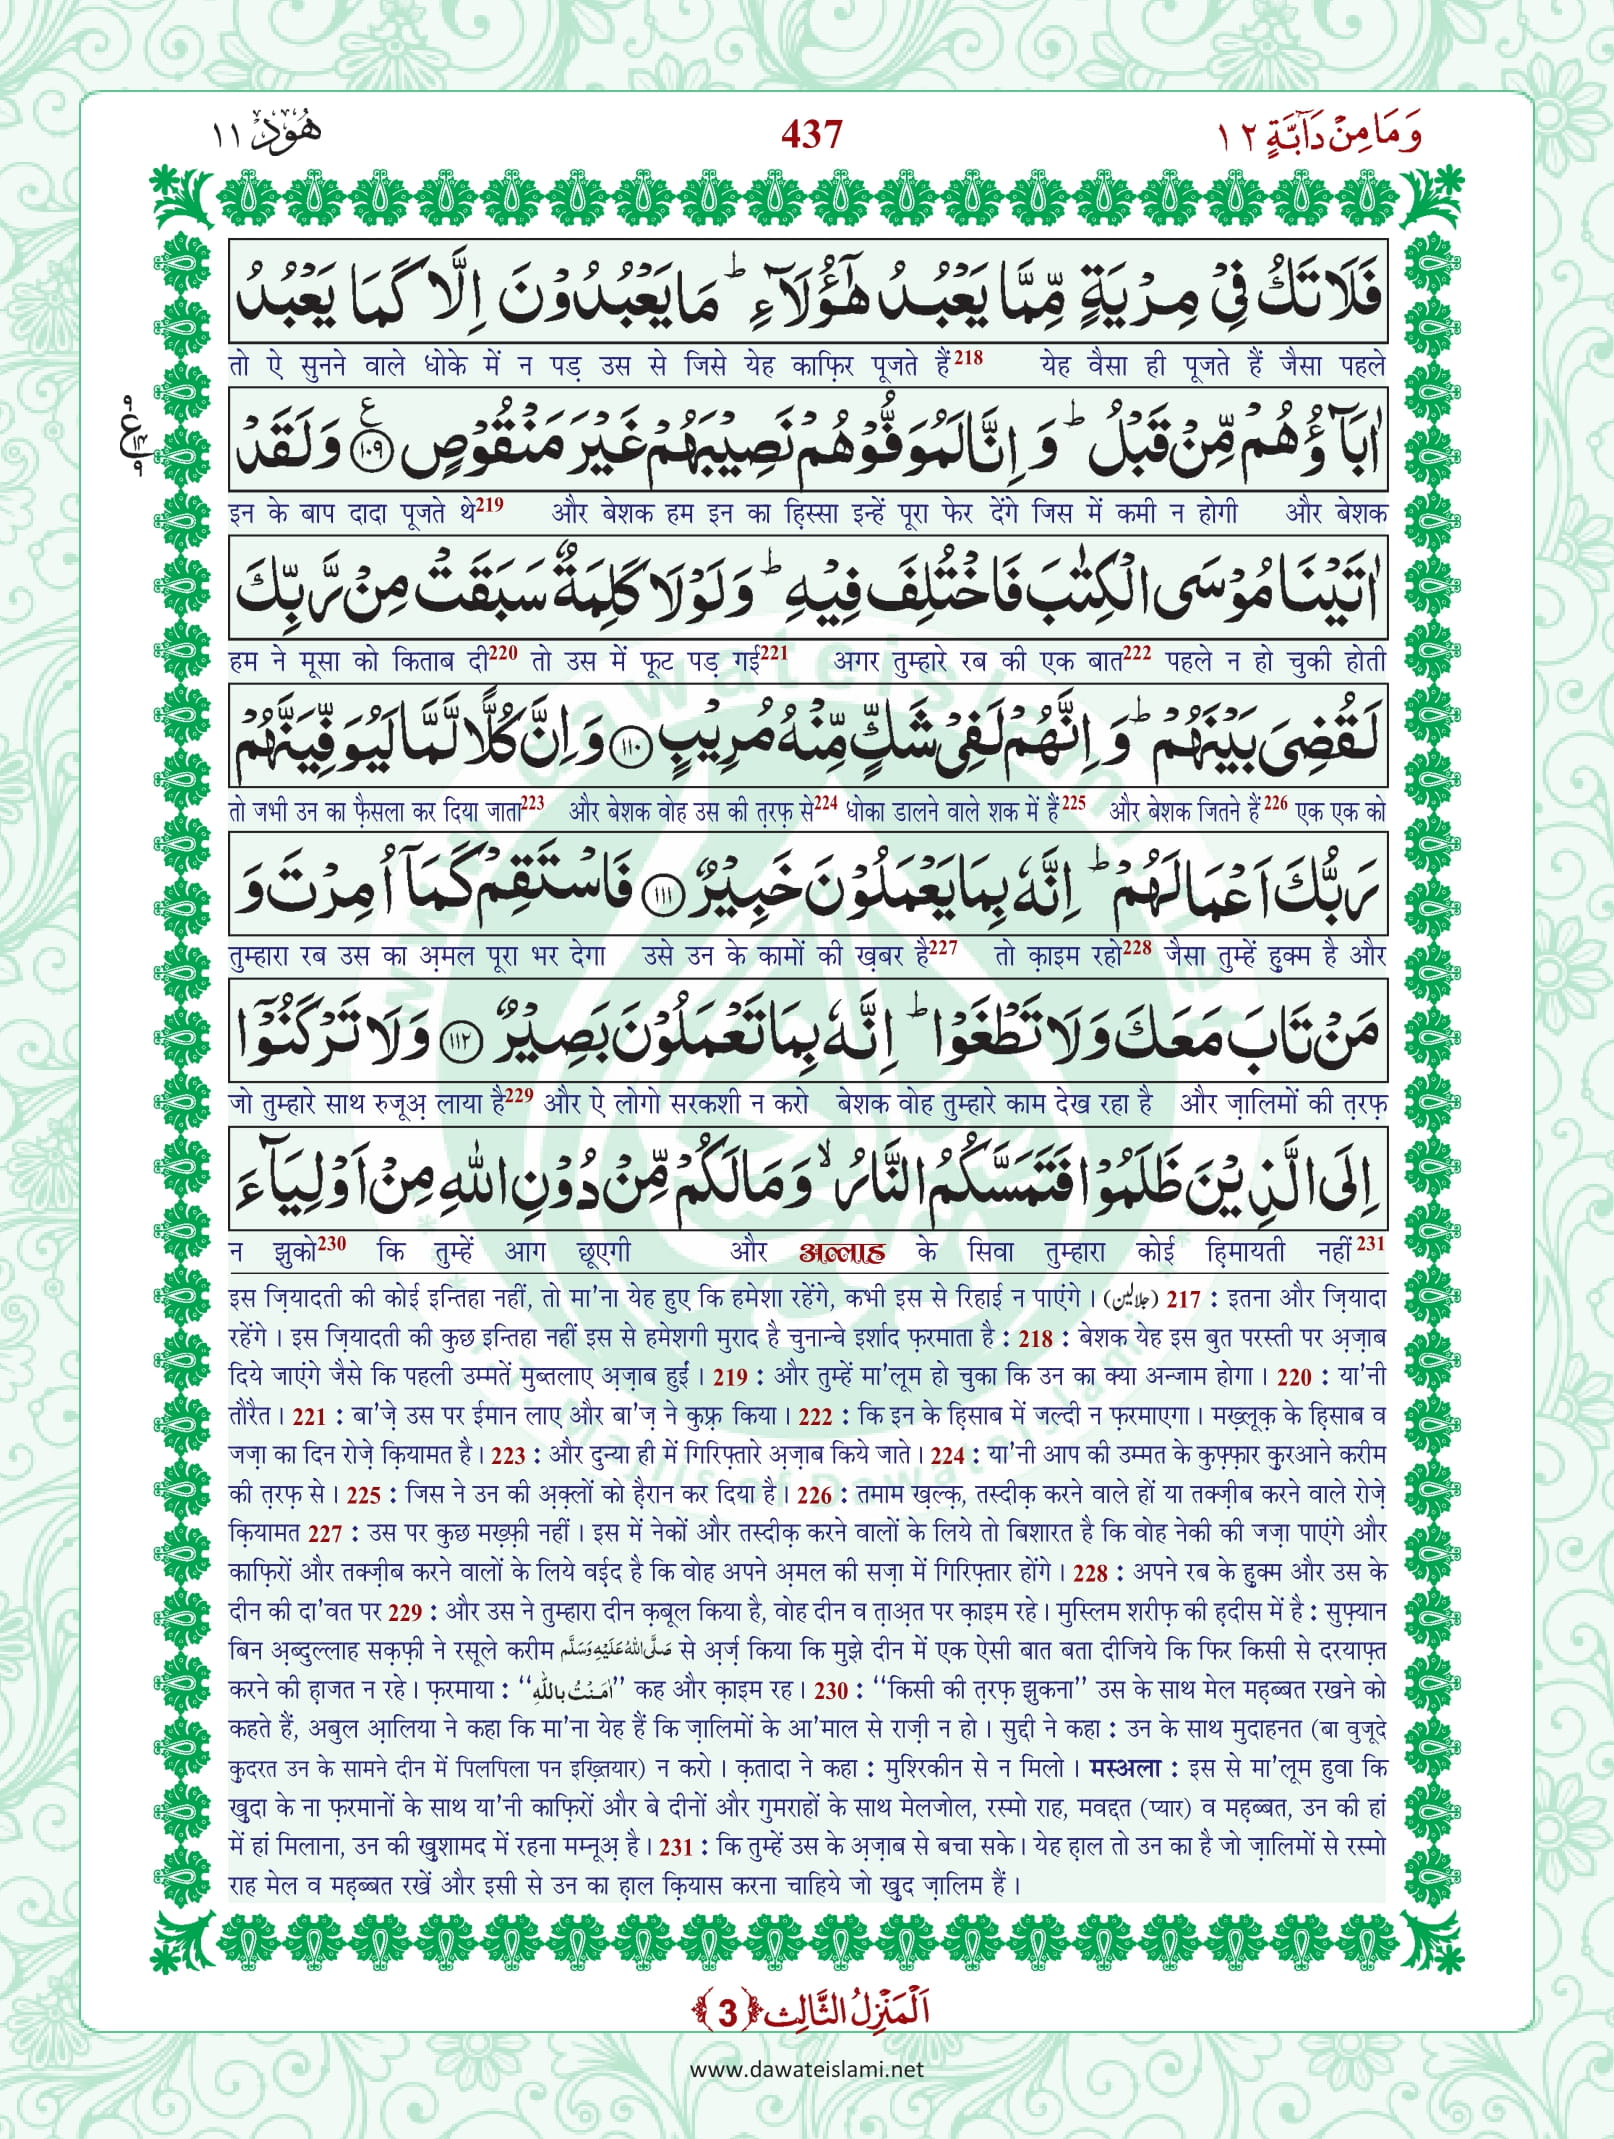 وَمَا مِنْ دَآبَّةٍ ١٢ 437 هُوْد ١١
فَلَا تَكُ فِیْ مِرْیَةٍ مِّمَّا یَعْبُدُ هٰۤؤُلَآءِ ؕ مَا یَعْبُدُوْنَ اِلَّا كَمَا یَعْبُدُ
तो ऐ सुनने वाले धोके में न पड़ उस से जिसे येह काफ़िर पूजते हैं218 येह वैसा ही पूजते हैं जैसा पहले
اٰبَآؤُهُمْ مِّنْ قَبْلُ ؕ وَ اِنَّا لَمُوَفُّوْهُمْ نَصِیْبَهُمْ غَیْرَ مَنْقُوْصٍ ۧ﴿۱۰۹﴾ وَ لَقَدْ
इन के बाप दादा पूजते थे219 और बेशक हम इन का हिस्सा इन्हें पूरा फेर देंगे जिस में कमी न होगी और बेशक
اٰتَیْنَا مُوْسَى الْكِتٰبَ فَاخْتُلِفَ فِیْهِ ؕ وَ لَوْ لَا كَلِمَةٌ سَبَقَتْ مِنْ رَّبِّكَ
हम ने मूसा को किताब दी220 तो उस में फूट पड़ गई221 अगर तुम्हारे रब की एक बात222 पहले न हो चुकी होती
لَقُضِیَ بَیْنَهُمْ ؕ وَ اِنَّهُمْ لَفِیْ شَكٍّ مِّنْهُ مُرِیْبٍ ﴿۱۱۰﴾ وَ اِنَّ كُلًّا لَّمَّا لَیُوَفِّیَنَّهُمْ
तो जभी उन का फ़ैसला कर दिया जाता223 और बेशक वोह उस की त़रफ़ से224 धोका डालने वाले शक में हैं225 और बेशक जितने हैं226 एक एक को
رَبُّكَ اَعْمَالَهُمْ ؕ اِنَّهٗ بِمَا یَعْمَلُوْنَ خَبِیْرٌ ﴿۱۱۱﴾ فَاسْتَقِمْ كَمَاۤ اُمِرْتَ وَ
तुम्हारा रब उस का अ़मल पूरा भर देगा उसे उन के कामों की ख़बर है227 तो क़ाइम रहो228 जैसा तुम्हें हुक्म है और
مَنْ تَابَ مَعَكَ وَ لَا تَطْغَوْا ؕ اِنَّهٗ بِمَا تَعْمَلُوْنَ بَصِیْرٌ ﴿۱۱۲﴾ وَ لَا تَرْكَنُوْۤا
जो तुम्हारे साथ रुजूअ़ लाया है229 और ऐ लोगो सरकशी न करो बेशक वोह तुम्हारे काम देख रहा है और ज़ालिमों की त़रफ़
اِلَى الَّذِیْنَ ظَلَمُوْا فَتَمَسَّكُمُ النَّارُ ۙ وَ مَا لَكُمْ مِّنْ دُوْنِ اللّٰهِ مِنْ اَوْلِیَآءَ
न झुको230 कि तुम्हें आग छूएगी और अल्लाह के सिवा तुम्हारा कोई ह़िमायती नहीं231
इस ज़ियादती की कोई इन्तिहा नहीं, तो मा'ना येह हुए कि हमेशा रहेंगे, कभी इस से रिहाई न पाएंगे। (جلالین) 217 : इतना और ज़ियादा
रहेंगे। इस ज़ियादती की कुछ इन्तिहा नहीं इस से हमेशगी मुराद है चुनान्चे इर्शाद फ़रमाता है : 218 : बेशक येह इस बुत परस्ती पर अ़ज़ाब
दिये जाएंगे जैसे कि पहली उम्मतें मुब्तलाए अ़ज़ाब हुईं। 219 : और तुम्हें मा'लूम हो चुका कि उन का क्या अन्जाम होगा। 220 : या'नी
तौरैत। 221 : बा'ज़े उस पर ईमान लाए और बा'ज़ ने कुफ़्र किया। 222 : कि इन के ह़िसाब में जल्दी न फ़रमाएगा। मख़्लूक़ के ह़िसाब व
जज़ा का दिन रोज़े क़ियामत है। 223 : और दुन्या ही में गिरिफ़्तारे अ़ज़ाब किये जाते। 224 : या'नी आप की उम्मत के कुफ़्फ़ार क़ुरआने करीम
की त़रफ़ से। 225 : जिस ने उन की अ़क़्लों को ह़ैरान कर दिया है। 226 : तमाम ख़ल्क़, तस्दीक़ करने वाले हों या तक्ज़ीब करने वाले रोज़े
क़ियामत 227 : उस पर कुछ मख़्फ़ी नहीं। इस में नेकों और तस्दीक़ करने वालों के लिये तो बिशारत है कि वोह नेकी की जज़ा पाएंगे और
काफ़िरों और तक्ज़ीब करने वालों के लिये वई़द है कि वोह अपने अ़मल की सज़ा में गिरिफ़्तार होंगे। 228 : अपने रब के हुक्म और उस के
दीन की दा'वत पर 229 : और उस ने तुम्हारा दीन क़बूल किया है, वोह दीन व त़ाअ़त पर क़ाइम रहे। मुस्लिम शरीफ़ की ह़दीस में है : सुफ़्यान
बिन अ़ब्दुल्लाह सक़फ़ी ने रसूले करीम صَلَّى اللّٰهُ عَلَیْهِ وَسَلَّم से अ़र्ज़ किया कि मुझे दीन में एक ऐसी बात बता दीजिये कि फिर किसी से दरयाफ़्त
करने की ह़ाजत न रहे। फ़रमाया : ‘‘اٰمَنْتُ بِاللّٰهِ’’ कह और क़ाइम रह। 230 : ‘‘किसी की त़रफ़ झुकना’’ उस के साथ मेल मह़ब्बत रखने को
कहते हैं, अबुल आ़लिया ने कहा कि मा'ना येह हैं कि ज़ालिमों के आ'माल से राज़ी न हो। सुद्दी ने कहा : उन के साथ मुदाहनत (बा वुजूदे
क़ुदरत उन के सामने दीन में पिलपिला पन इख़्तियार) न करो। क़तादा ने कहा : मुश्रिकीन से न मिलो। मस्अला : इस से मा'लूम हुवा कि
ख़ुदा के ना फ़रमानों के साथ या'नी काफ़िरों और बे दीनों और गुमराहों के साथ मेलजोल, रस्मो राह, मवद्दत (प्यार) व मह़ब्बत, उन की हां
में हां मिलाना, उन की ख़ुशामद में रहना मम्नूअ़ है। 231 : कि तुम्हें उस के अ़ज़ाब से बचा सके। येह ह़ाल तो उन का है जो ज़ालिमों से रस्मो
राह मेल व मह़ब्बत रखें और इसी से उन का ह़ाल क़ियास करना चाहिये जो ख़ुद ज़ालिम हैं।
اَلْمَنْزِلُ الثَّالِث ﴿3﴾
www.dawateislami.net